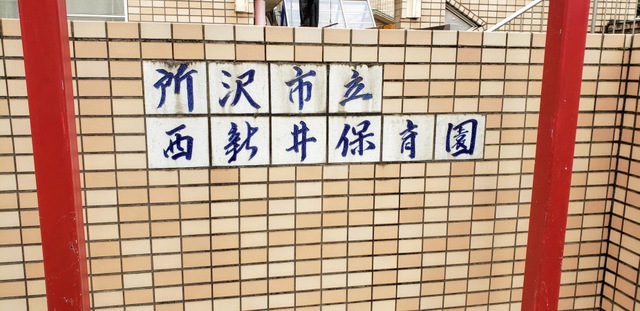 所沢市立
西新井保育園